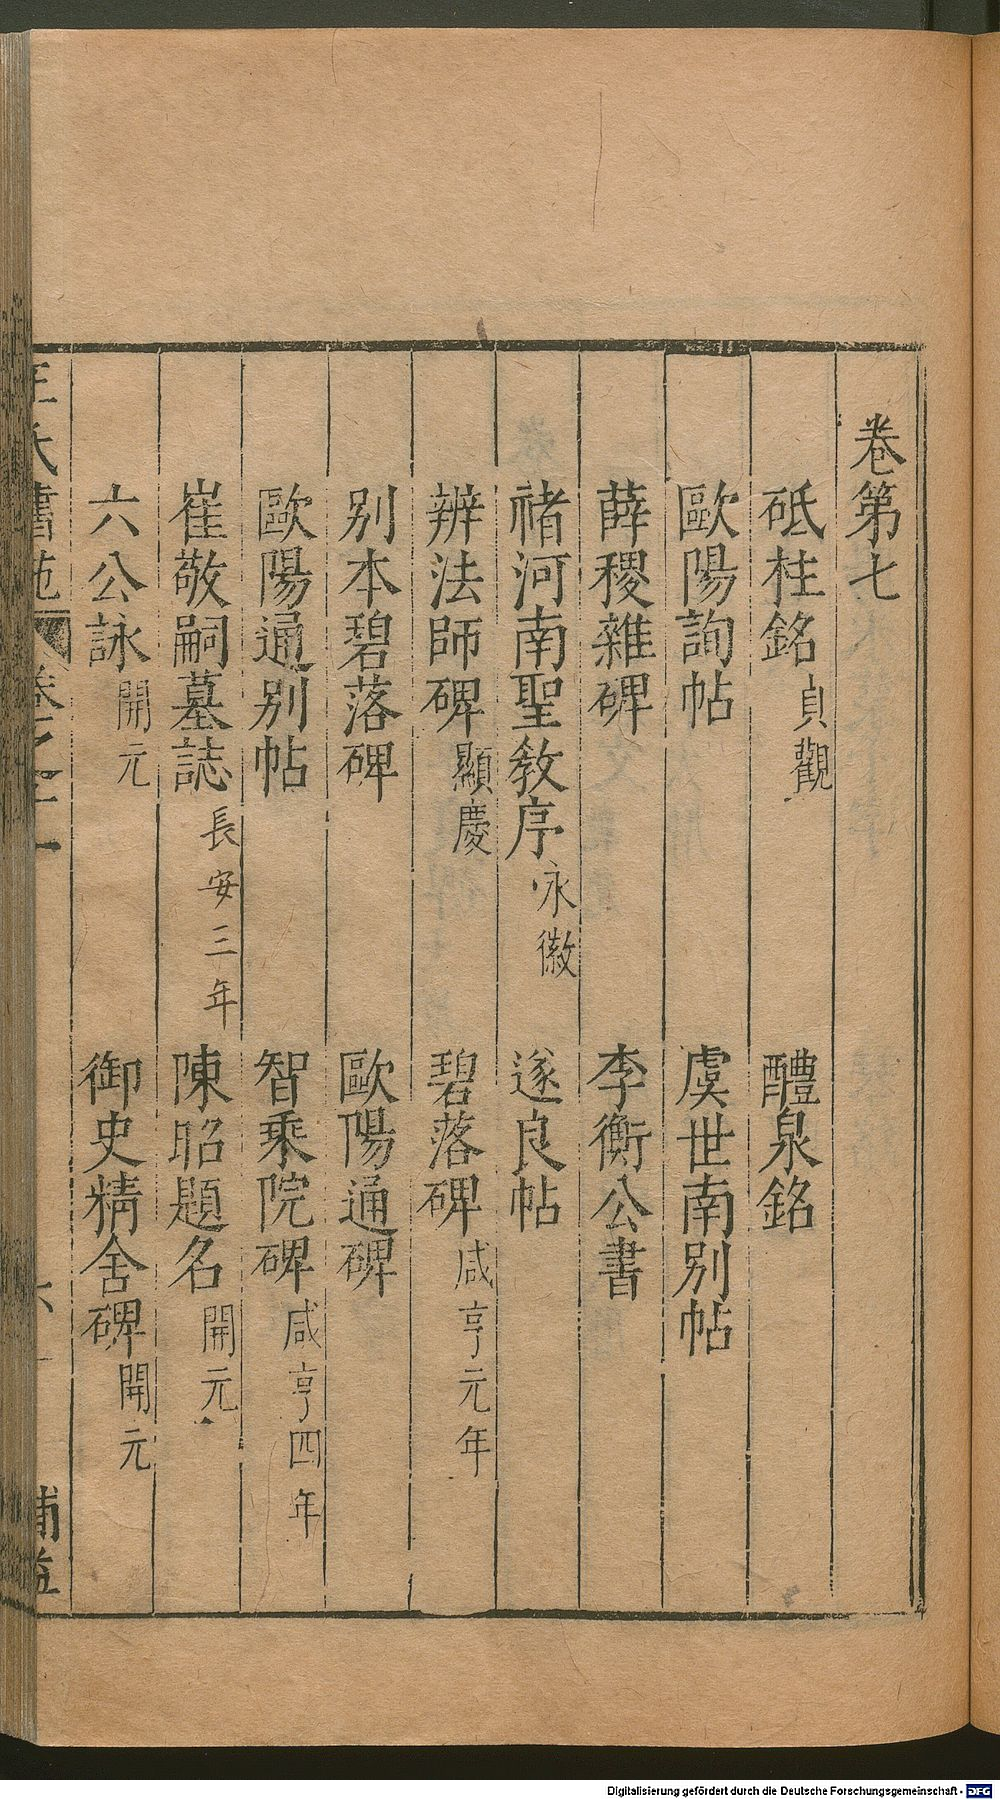 卷第七
砥柱銘貞觀 醴泉銘
歐陽詢帖 虞世南別帖
薛稷雜碑 李衡公書
禇河南聖敎序永徽 遂良帖
辨法師碑顯慶 碧落碑咸亨元年
別本碧落碑 歐陽通碑
歐陽通別帖 智乘院碑咸亨四年
崔敬嗣墓誌長安三年 陳昭題名開元
六公詠開元 御史精舍碑開元
王氏書苑 卷之
Digitalisierung gefördert durch die Deutsche Forschungsgemeinschaft - DFG